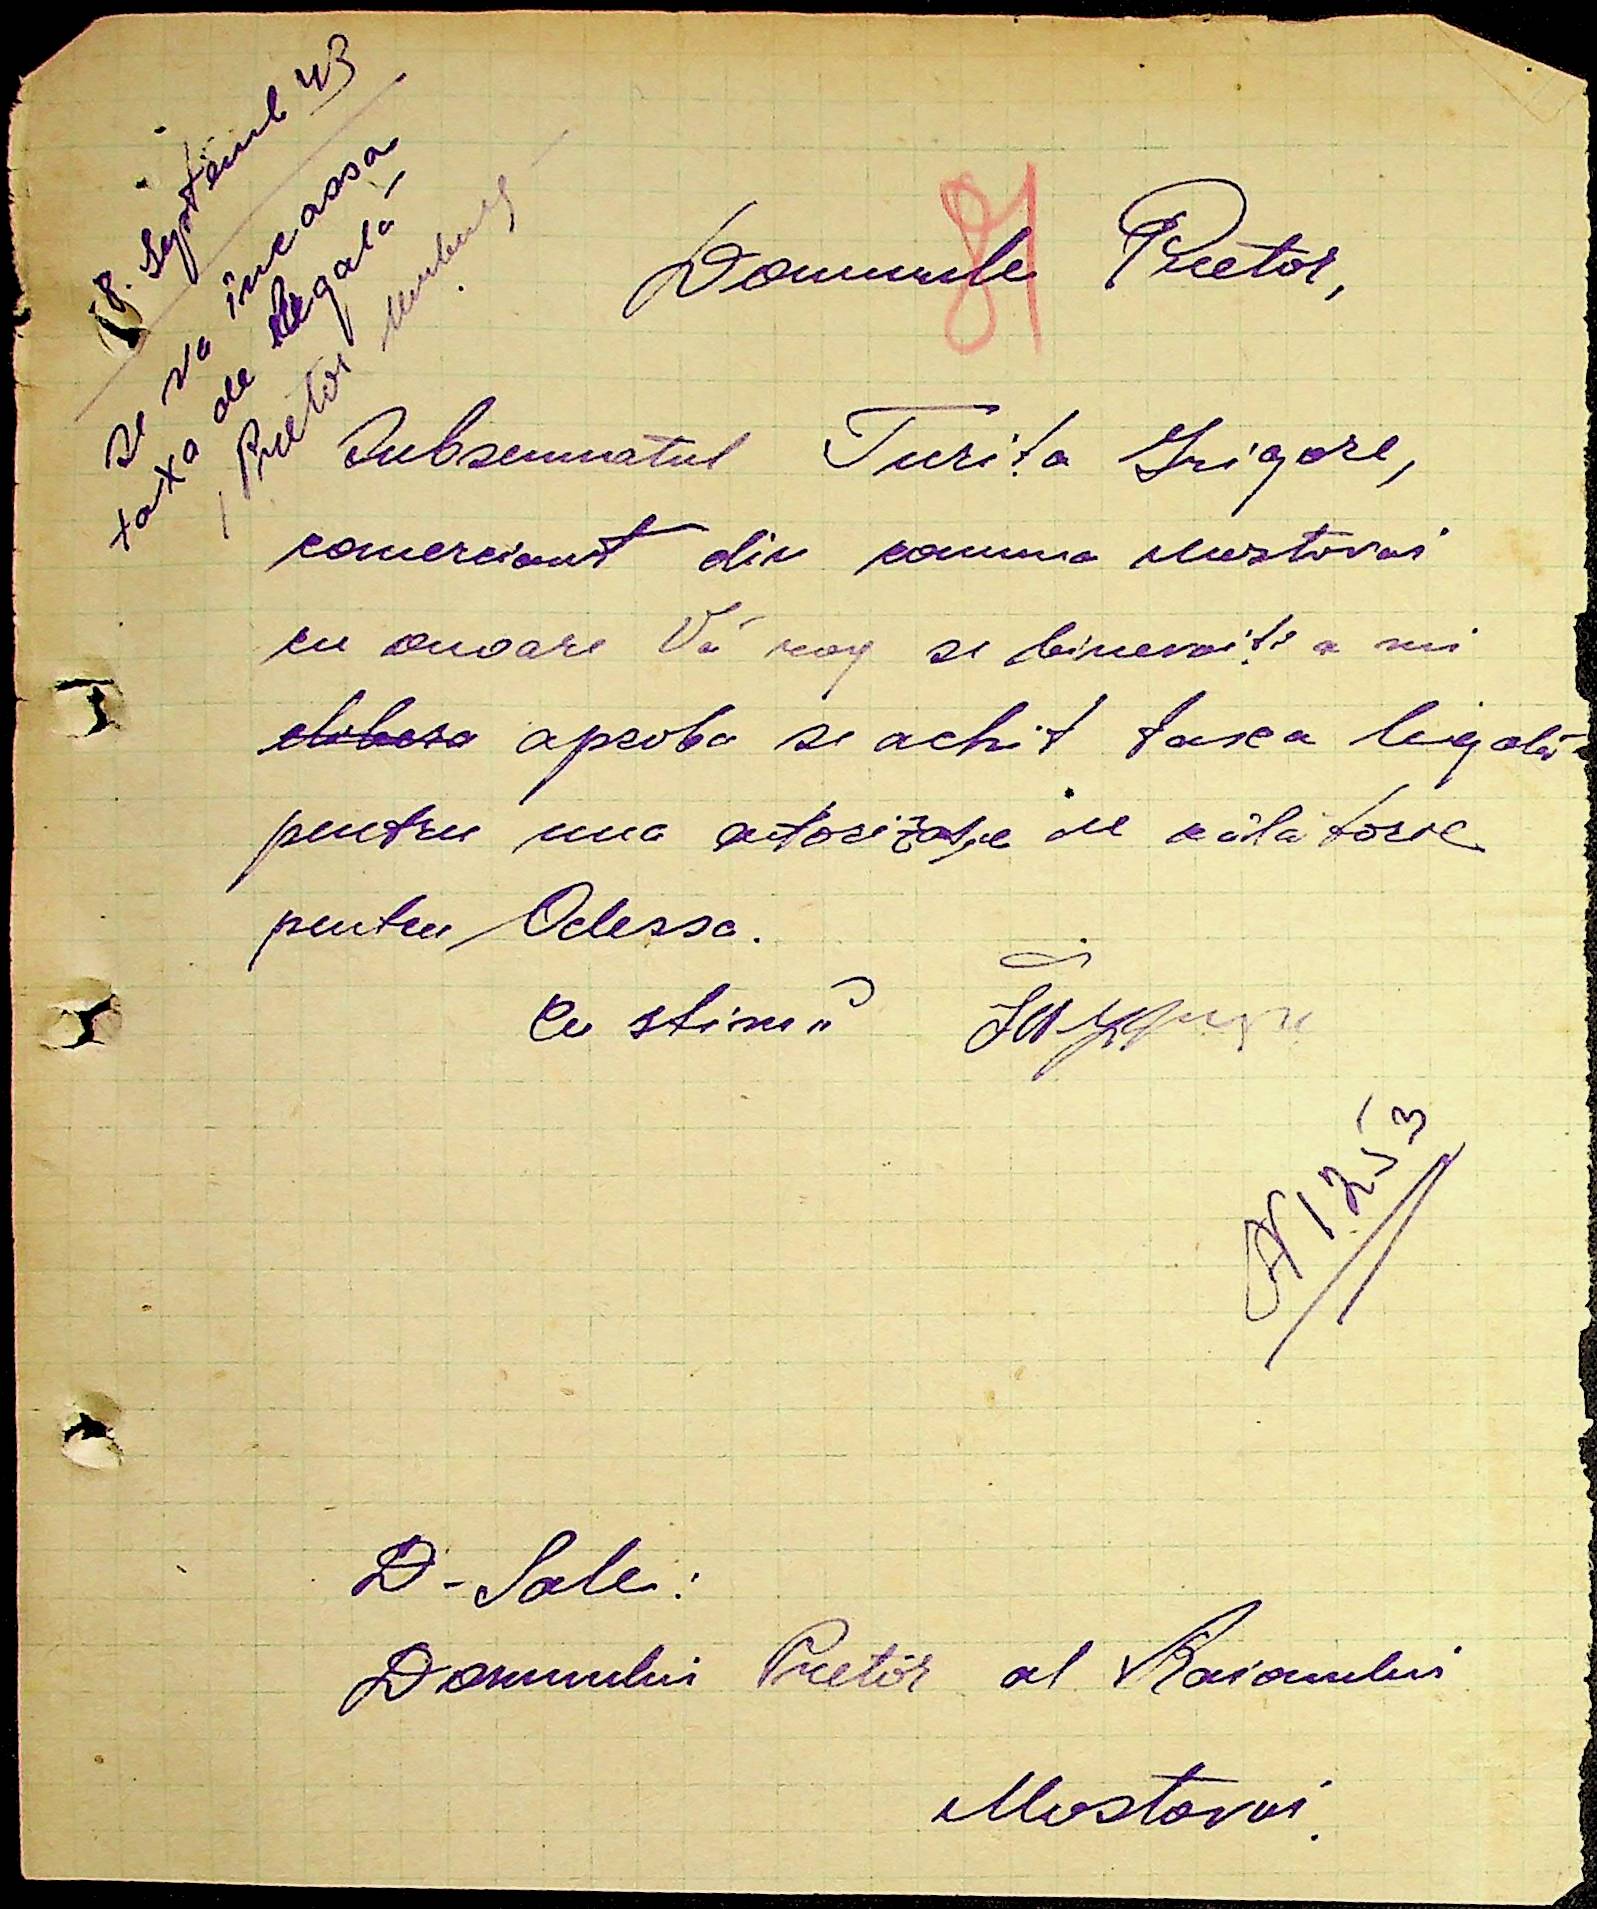 18. Septemb 43
Se va încassa
taxa de legală
Pretor
81
Domnule Pretor,
Subsemnatul Turița Grigore,
comerciant din comuna Mostovoi
cu onoare Vă rog se binevoiți a mi
elibera aproba se achit taxea legală
pentru una autorizație de călătorie
pentru Odessa.
Cu stimă
N 1253
D-Sale:
Domnului Pretor al Raionului
Mostovoi.